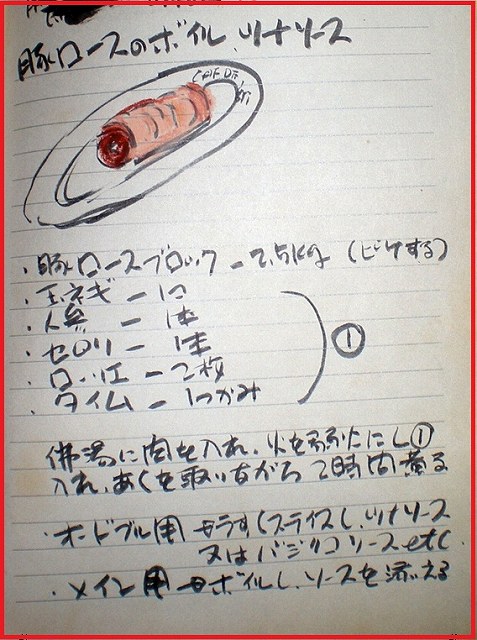 豚ロースのボイル、ツナソース
・豚ロースブロック - 2.5kg (ピケする)
・玉ネギ - 1コ
・人参 - 1本
・セロリ - 1本
・ローリエ - 2枚
・タイム - 1つかみ
①
沸湯に肉を入れ、火を弱火にし①
入れ、あくを取りながら 2時間煮る
・オードブル用 うすくスライスし、ツナソース
又はバジリコソースetc.
・メイン用 ボイルし、ソースを添える